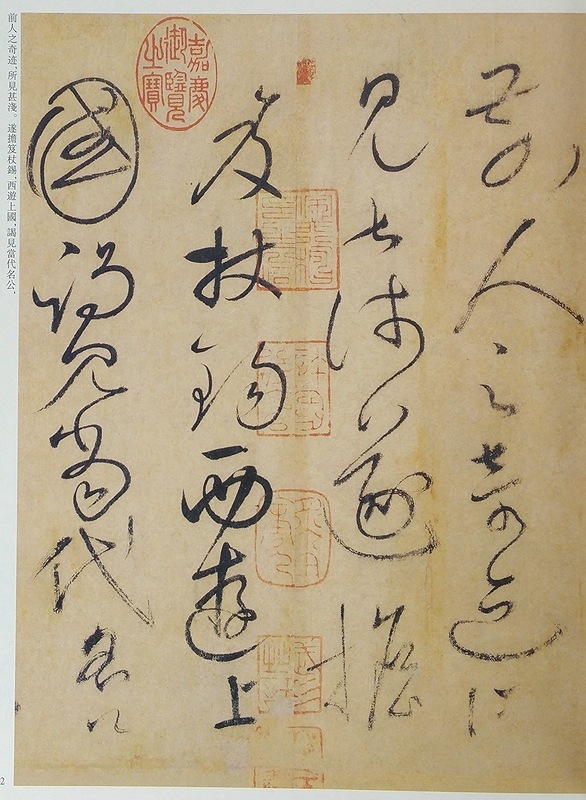 前人之奇迹所
見甚淺遂擔
笈杖錫西遊上
國謁見當代名公
嘉慶御覽之寶
前人之奇迹，所見甚淺。遂擔笈杖錫，西遊上國，謁見當代名公，
2